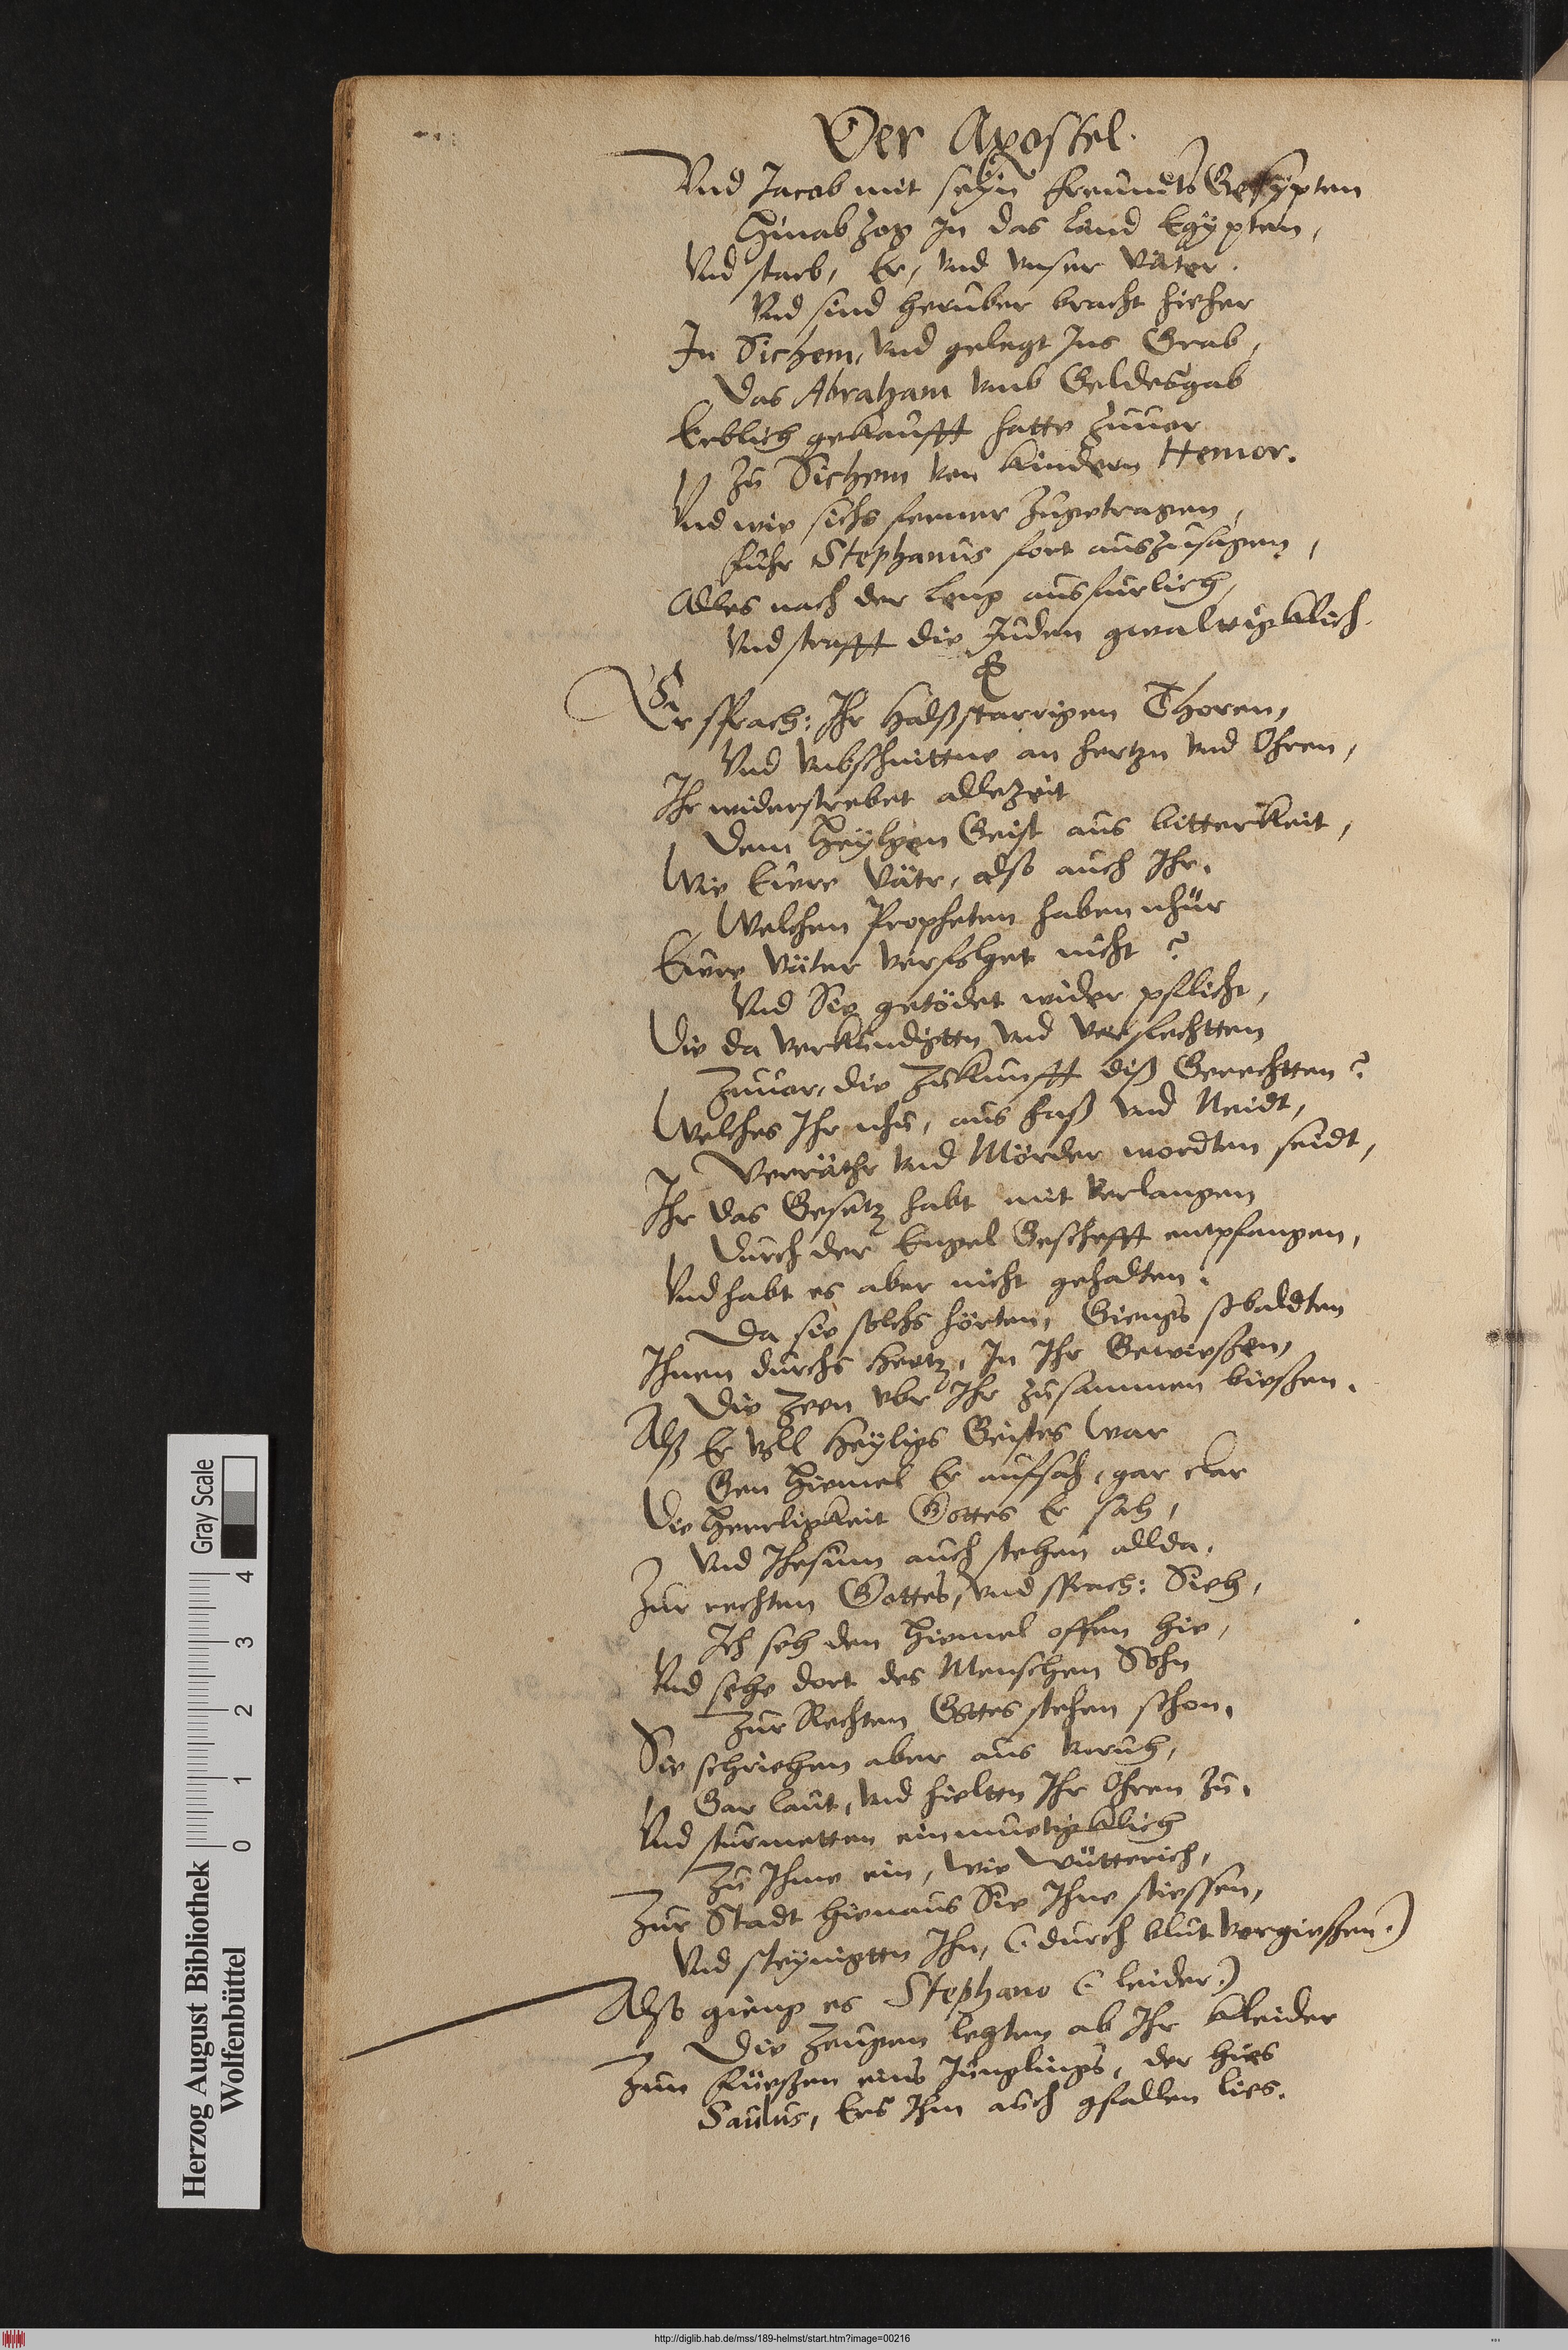 Der Apostel.
Vnd Jacob mit seyn freundts Gesypten
Hinab zog in das land Egypten,
Vnd starb, Er, vnd vnser Väter.
Vnd sind herüber bracht hieher
In Sichem, vnd gelegt Ins Grab,
Das Abraham vmb Geldesgab
Erblich gekaufft hatte zuuor
Zu Sichem von kindern Hemor.
Vnd wie sichs ferner zugetragen,
fuhr Stephanus fort auszusagen,
Alles nach der leng ausfurlich,
Vnd strafft die Juden gwaltigklich.
Er sprach: Ihr Halßstarrigen Thoren,
Vnd vnbschnittne an hertzn vnd Ohren,
Ihr widerstrebet allezeit
Dem Heylgen Geist aus bitterkeit,
Wie Eure Vätr, also auch Ihr.
Welchen Propheten haben nhür
Eure Väter verfolget nicht?
Vnd Sie getödet wider pflicht,
Die da verkündigtn vnd verfechtten
Zuuor, die Zukunfft diß Gerechtten?
Welches Ihr nhu, aus haß vnd Neidt,
Verräthr vnd Mörder wordten seidt,
Ihr das Gesetz habt mit verlangen
Durch der Engel Gescheft entpfangen,
Vnd habt es aber nicht gehalten.
Da sie solchs hörten, Giengs sobaldten
Ihnen durchs Hertz, In Ihr Gewießen,
Die Zeen vbr Ihr zusammen bießen.
Alß Er voll Heyligs Geistes war
Gen Himmel Er aufsah, gar clar
Die Herrligkeit Gottes Er sah,
Vnd Ihesum auch stehen allda,
Zur rechten Gottes, vnd sprach: Sieh,
Ich seh den Himmel offen hie,
Vnd sehe dort des Menschen Sohn
Zur Rechten Gottes stehen schon,
Sie schriehen aber aus vnruh,
Gar laut, vnd hieltn Ihr Ohren zu,
Vnd sturmetten einmuetigklich
Zu Ihme ein, wie wütterich,
Zur Stadt hienaus Sie Ihne stiessen,
Vnd steynigttn Ihn, (durch blut vergießen.)
Also gieng es Stephano (leider.)
Die Zeugen legten ab Ihr kleider
Zum füeßen eins Junglings, der hies
Saulus, Ers Ihm auch gfallen lies.
Herzog August Bibliothek
Wolfenbüttel
0 1 2 3 4
Gray Scale
http://diglib.hab.de/mss/189-helmst/start.htm?image=00216